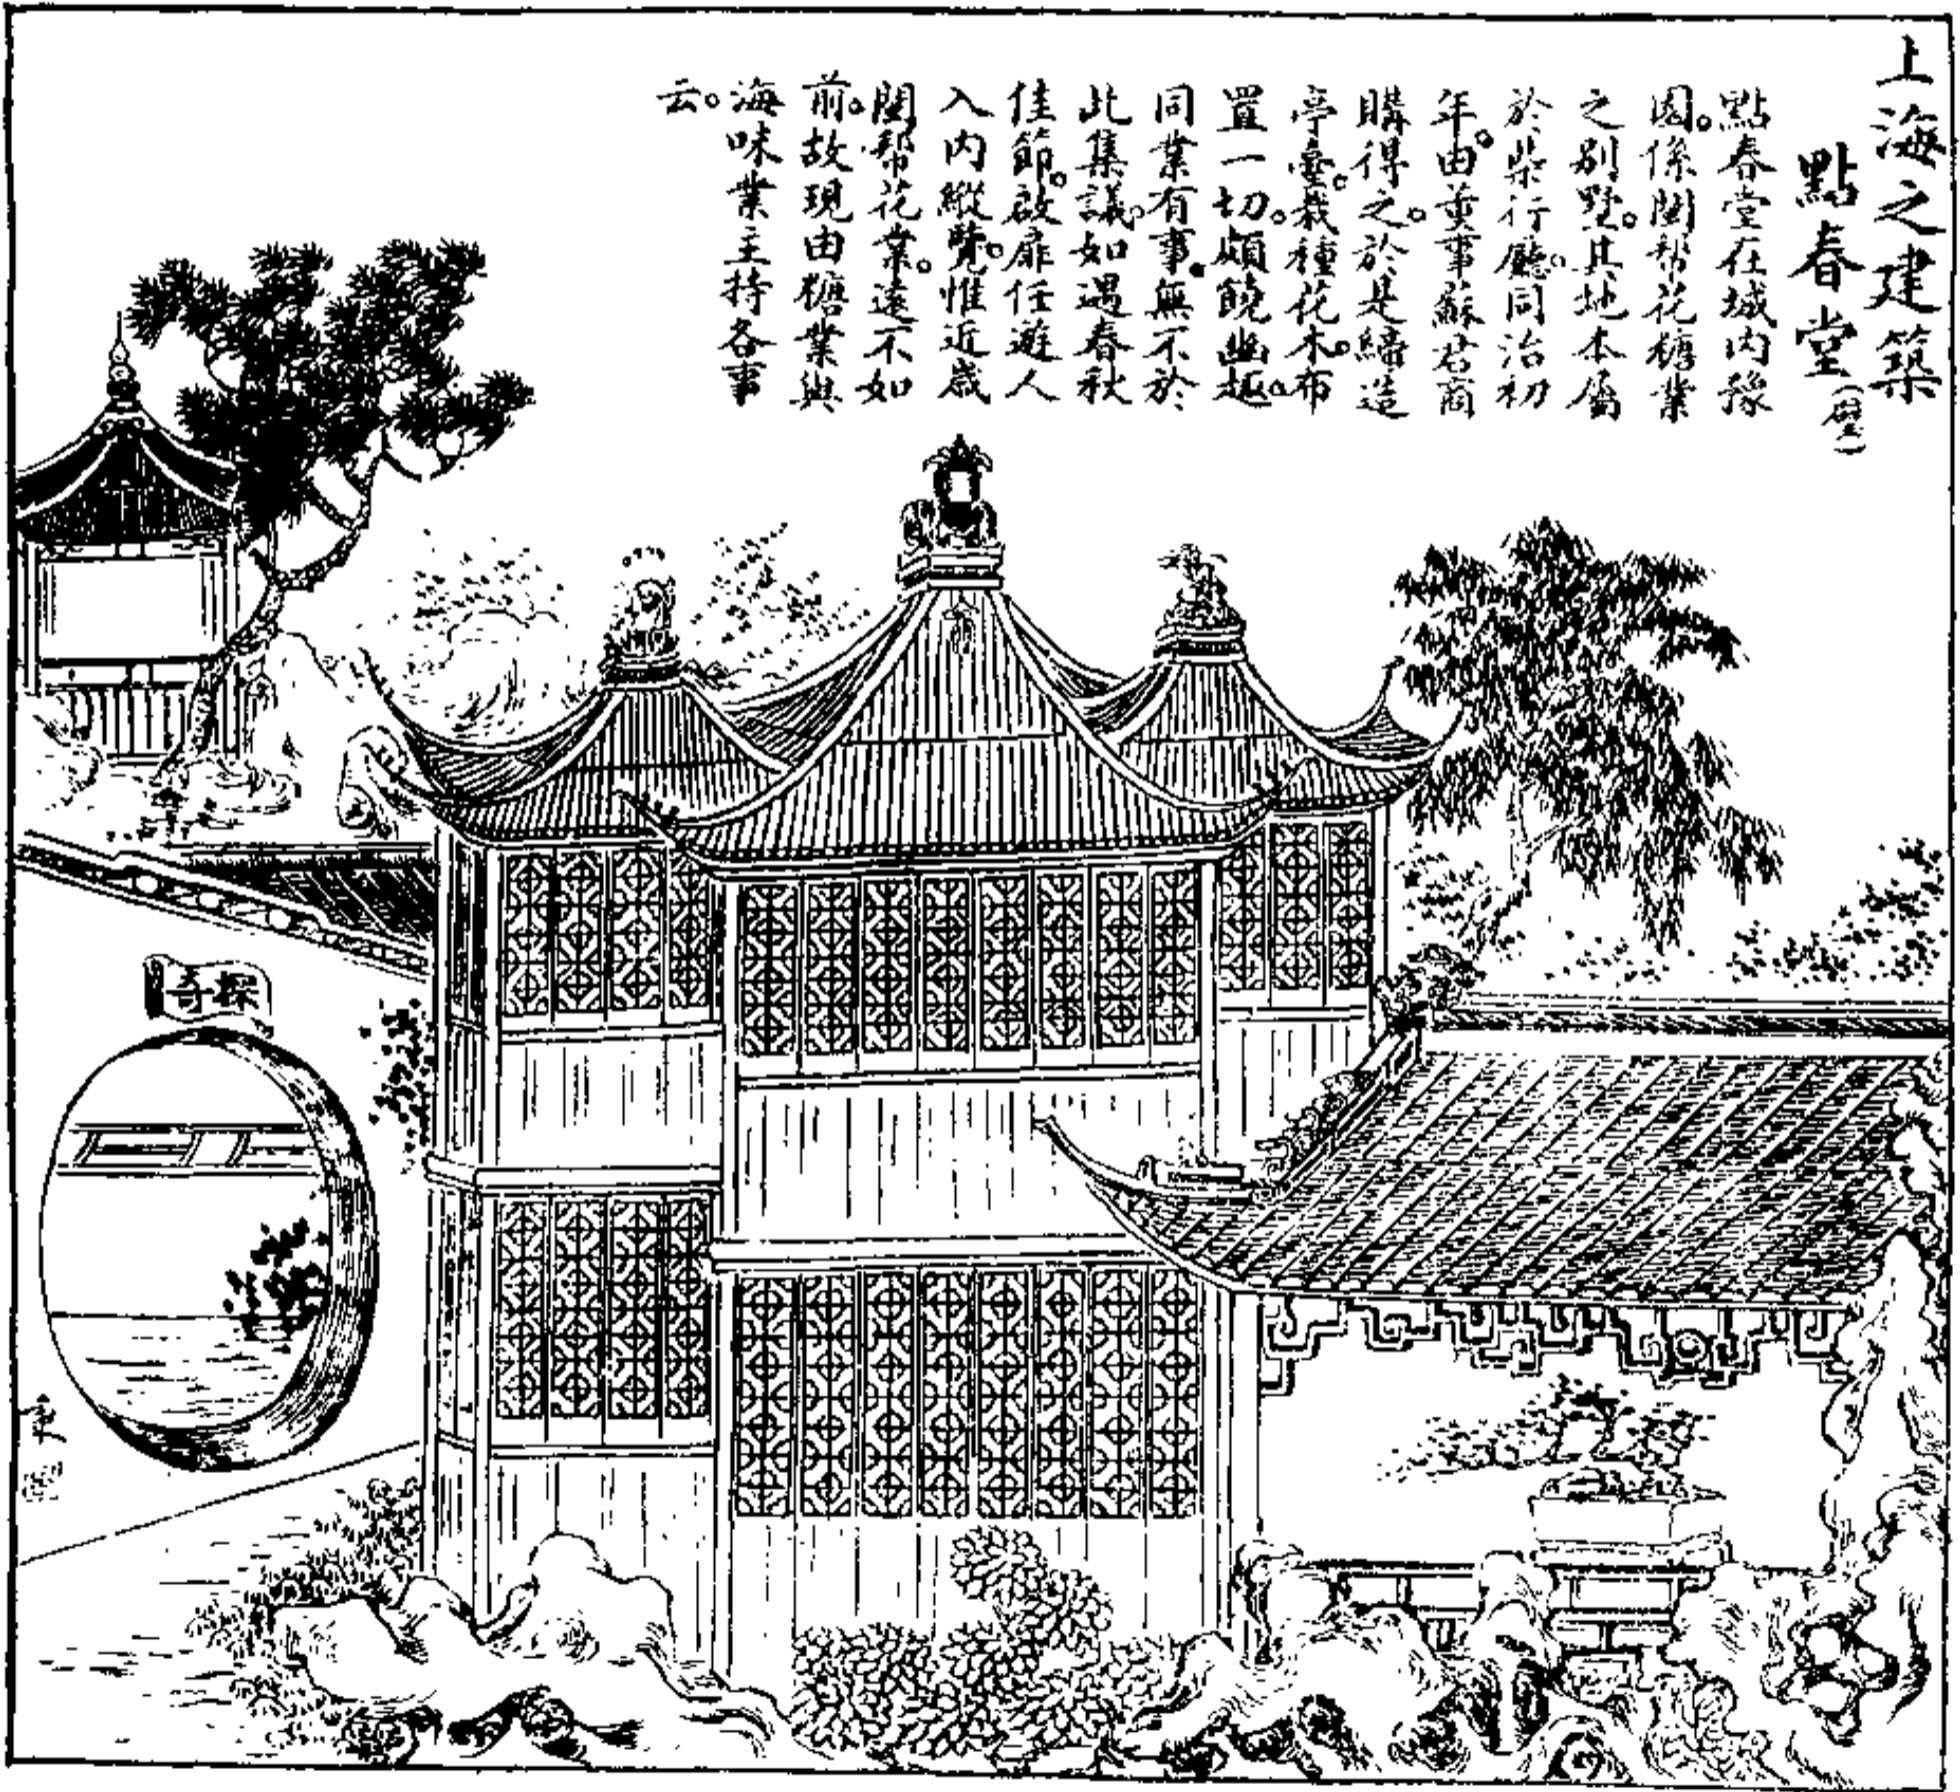 上海之建築
點春堂
點春堂在城内豫
園。係閩幇花糖業
之别墅。其地本屬
於柴行廳。同治初
年。由董事蘇君商
購得之。於是締造
亭臺。栽種花木。布
置一切。頗饒幽趣。
同業有事。無不於
此集議。如遇春秋
佳節。啟扉任遊人
入内縱覽。惟近歲
閩幇花業。遠不如
前。故現由糖業與
海味業主持各事
云。
探奇